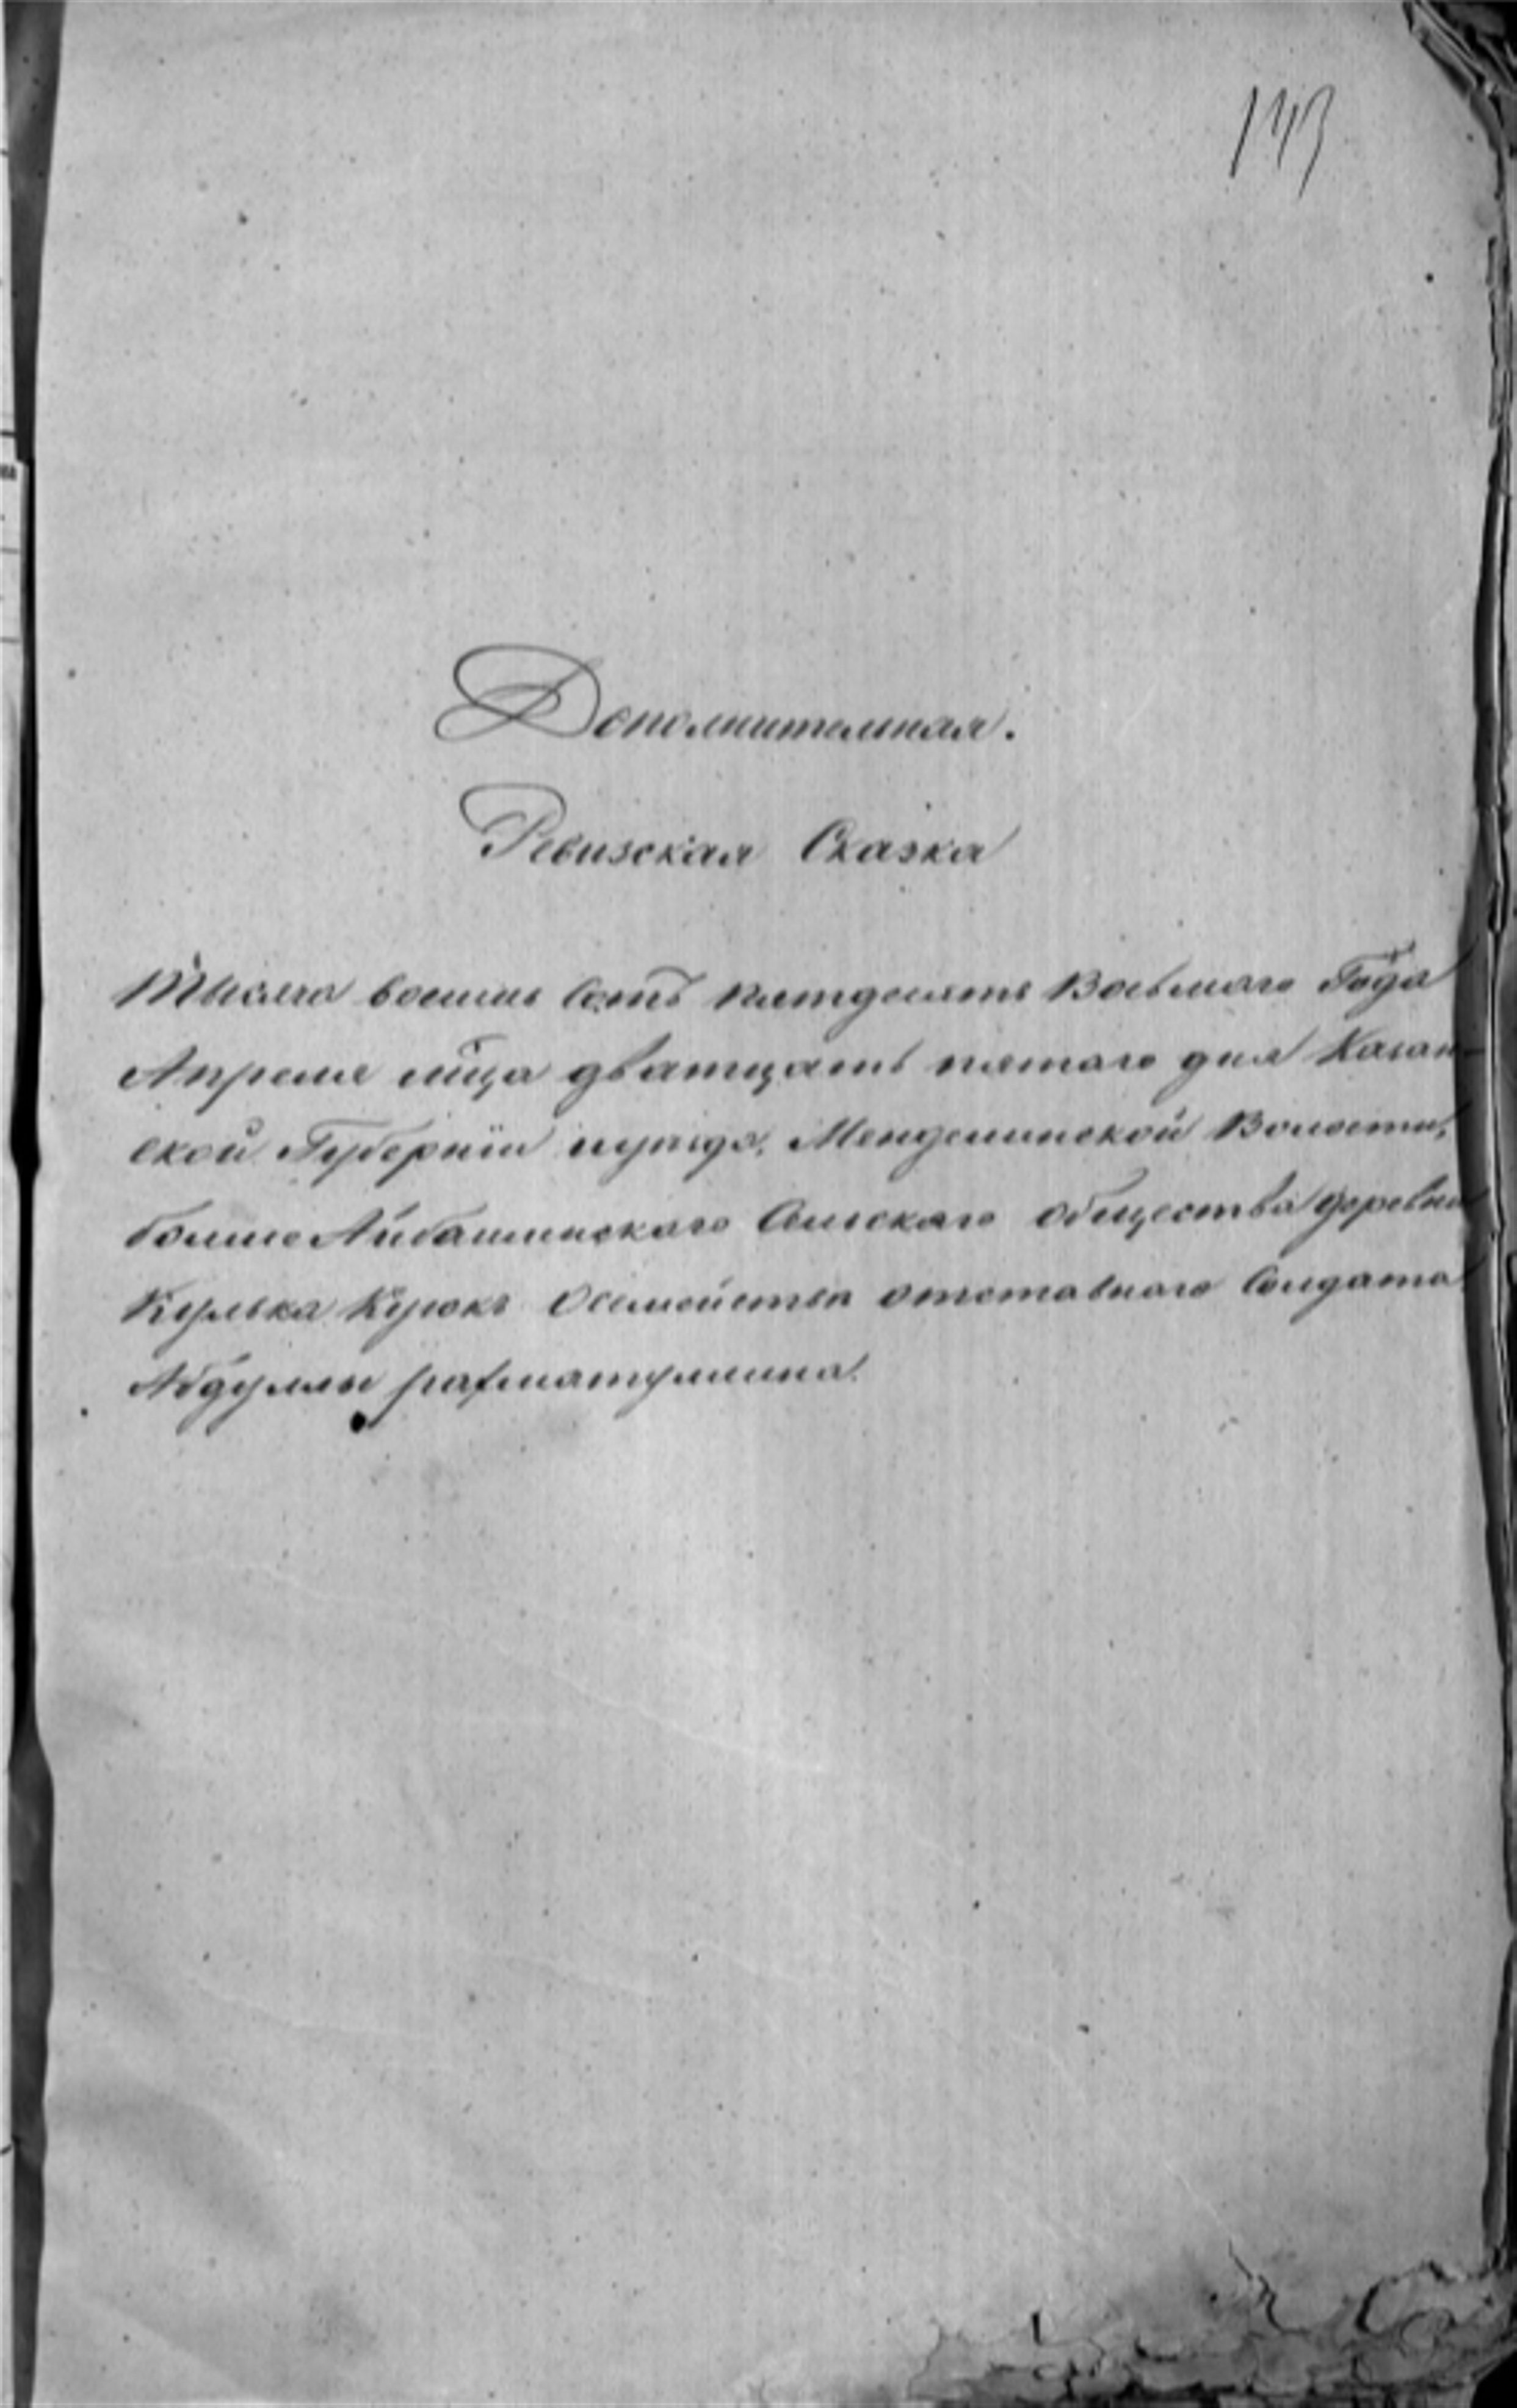 143
Дополнителная.
Ревизская Сказка
Тысяча восемь сотъ пятдесять Восьмаго Года
Апреля мца дватцать пятаго дня Казан-
ской Губерніи иуезда, Менделинской Волости,
болше Айбашинскаго Селскаго общества деревни
Кулька Куюкъ Осемействе отставнаго Солдата
Абдуллы рахматуллина.